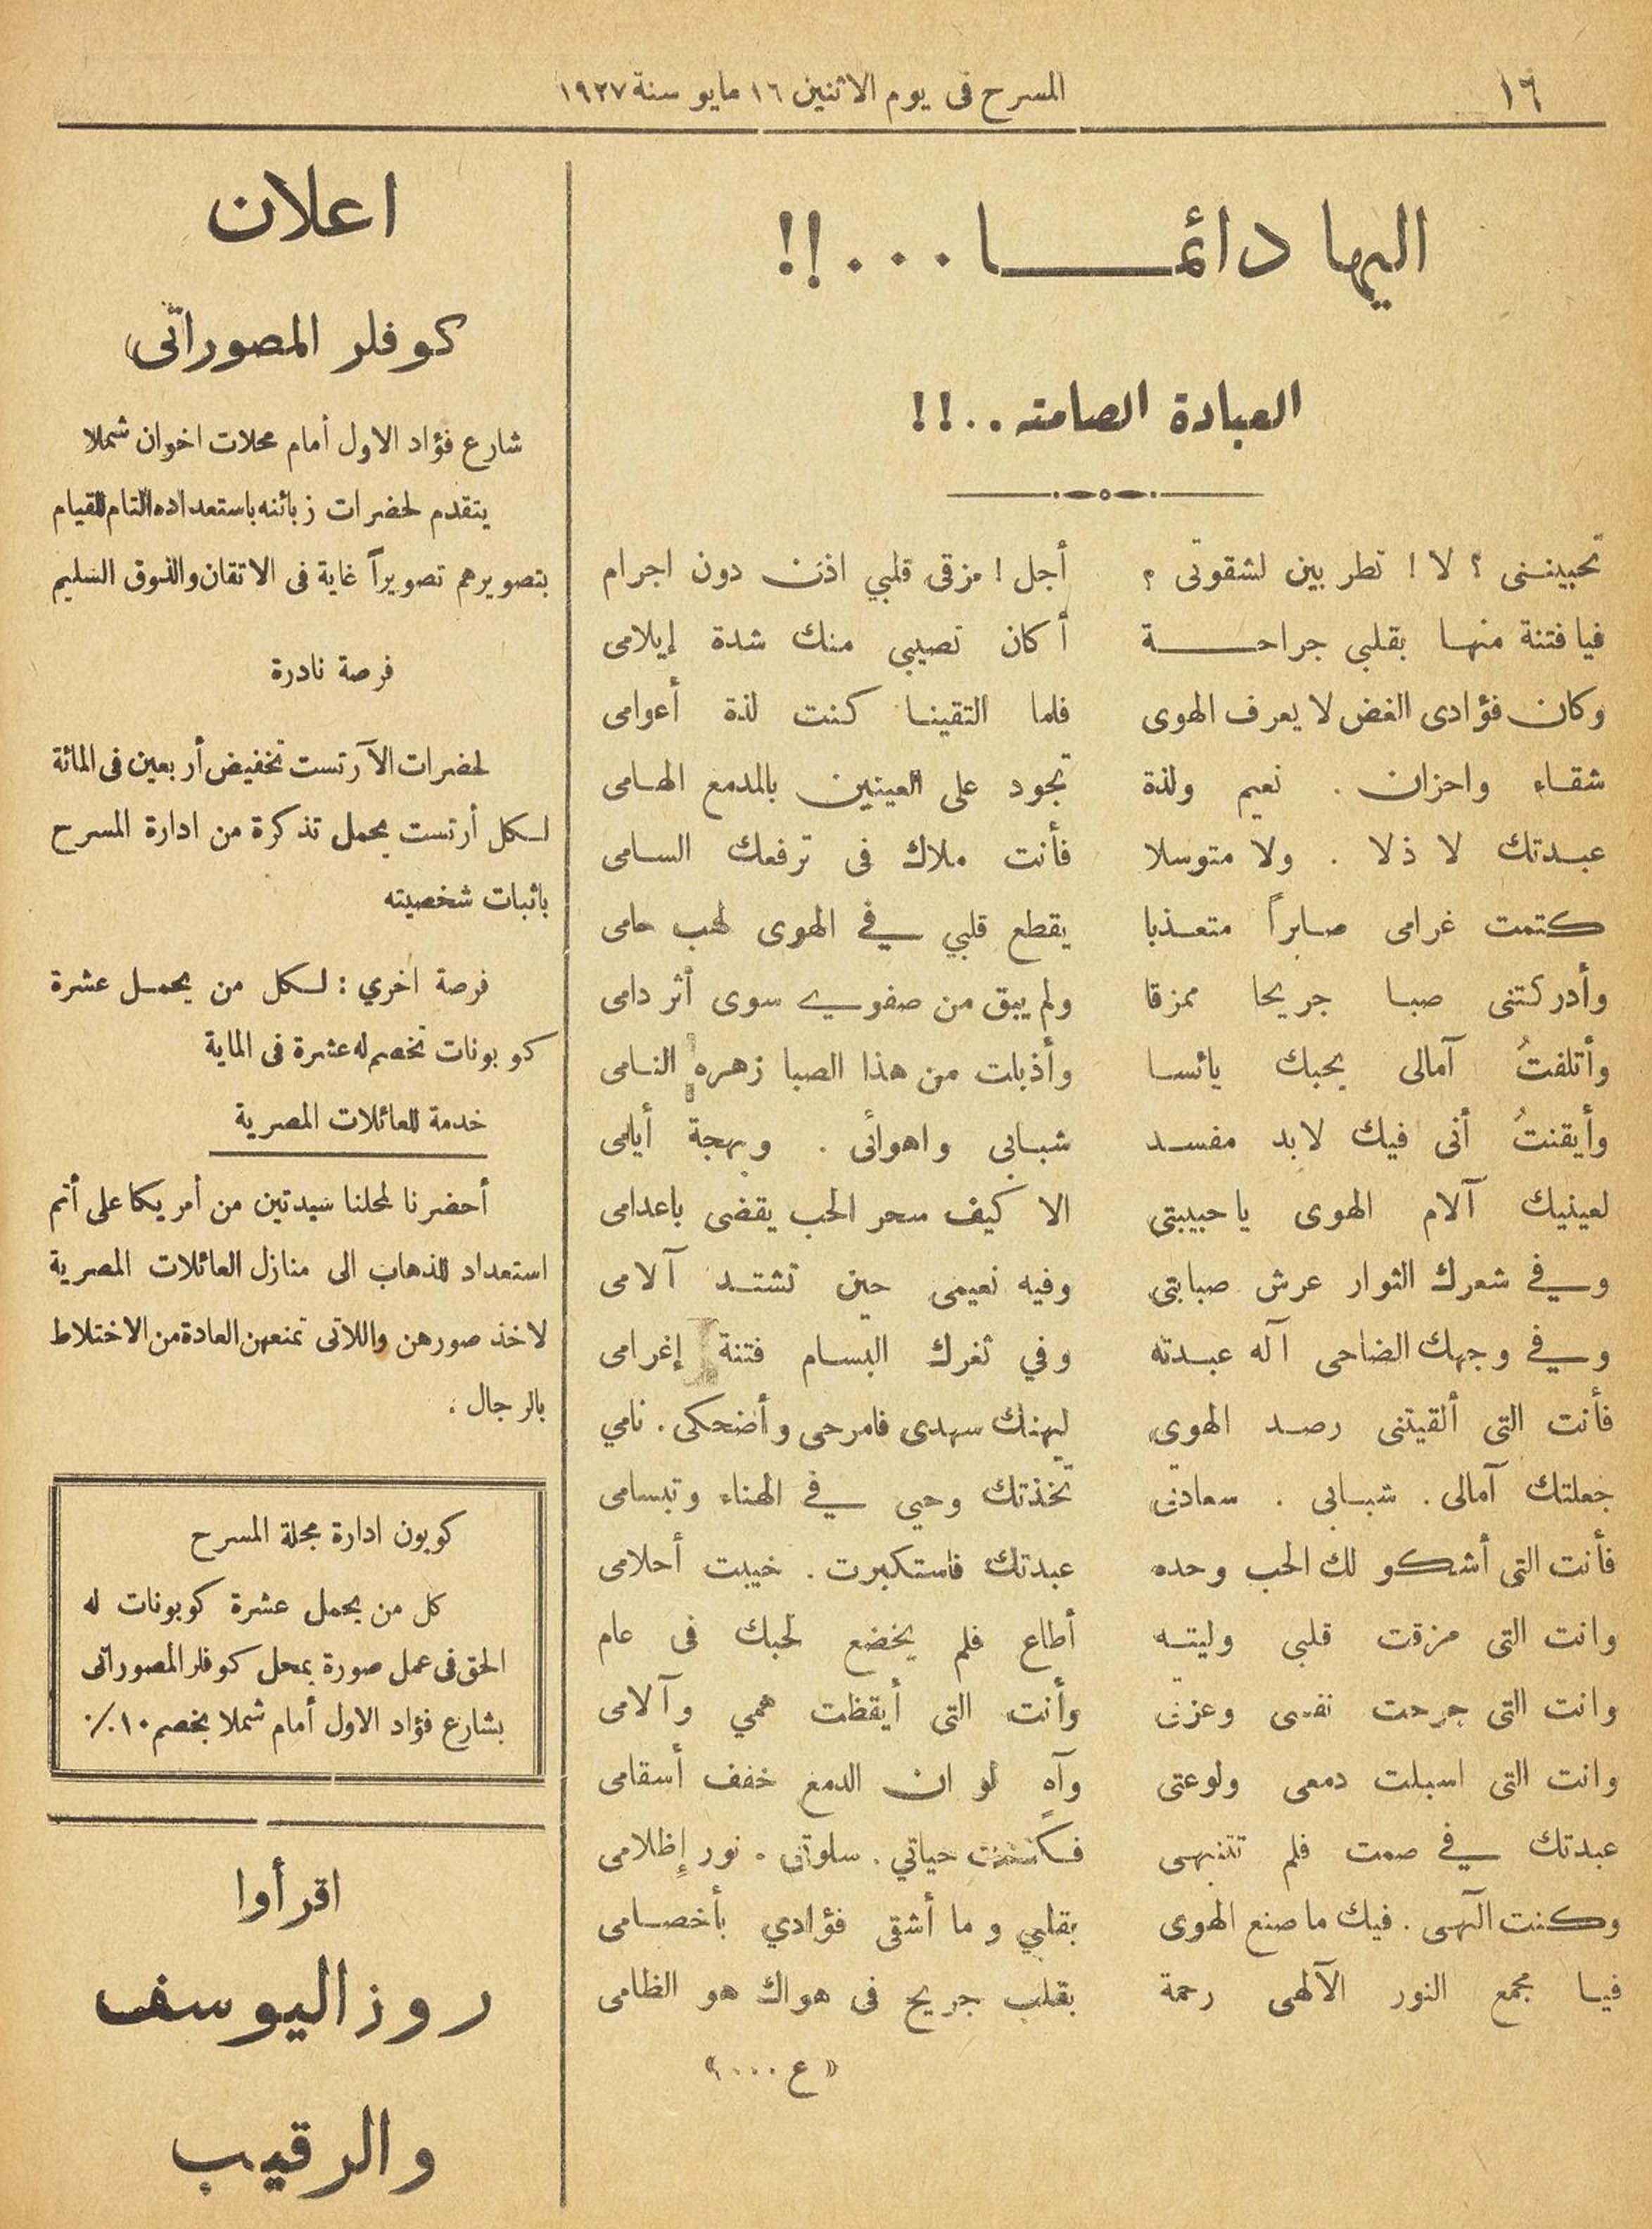 ١٦
المسرح فى يوم الاثنين ١٦ مايو سنة ١٩٢٧
اليها دائمـــا . . . !!
العبادة الصامته . . !!
تحبينـنى ؟ لا ! تطربين لشقوتى ؟ أجل ! مزقى قلبي اذن دون اجرام
فيا فتنة منهـا بقلبي جراحـــة أكان نصيبي منك شدة إيلامى
وكان فؤادى الغض لا يعرف الهوى فلما التقينـا كنت لذة أعوامى
شقـاء واحزان . نعيم ولذة تجود على العينين بالمدمع الهـامى
عبـدتك لا ذلا . ولا متوسلا فأنت ملاك فى ترفعك السـامى
كتمت غرامى صـابراً متعـذبا يقطع قلبي في الهوى لهب حامى
وأدركتنى صبـا جريحا ممزقا ولم يبق من صفوي سوى أثر دامى
وأتلفتُ آمالى بحبك يائسـا وأذبلت من هذا الصبا زهره النـامى
وأيقنتُ أنى فيك لابد مفسـد شبـابى واهوائى . وبهجة أيامى
لعينيك آلام الهوى ياحبيبتى الا كيف سحر الحب يقضى باعدامى
وفي شعرك الثوار عرش صبابتى وفيه نعيمى حين تشتـد آلامى
وفي وجهك الضاحى آله عبـدته وفي ثغرك البسـام فتنة إغرامى
فأنت التى ألقيتنى رصـد الهوى ليهنك سهدى فامرحى وأضحكى . نامي
جعلتك آمالى . شبـابى . سعادتى تخذتك وحيي في الهناء وتبسامى
فأنت التى أشكو لك الحب وحده عبدتك فاستكبرت . خيبت أحلامى
وانت التى مزقت قلبي وليتـه أطاع فلم يخضع لحبك فى عام
وانت التى جرحت نفسى وعزتى وأنت التى أيقظت همي وآلامى
وانت التى اسبلت دمعى ولوعتى وآه لو ان الدمع خفف أسقامى
عبدتك في صمت فلم تتنبهـى فكنت حياتي . سلوتى . نور إظلامى
وكنت آلهى . فيك ما صنع الهوى بقلبي وما أشقى فؤادي بأخصـامى
فيـا مجمع النور الآلهى رحمة بقلب جريح فى هواك هو الظامى
« ع . . . . »
اعلان
كوفلر المصوراتى
شارع فؤاد الاول أمام محلات اخوان شملا
يتقدم لحضرات زبائنه باستعداده التام للقيام
بتصويرهم تصويراً غاية فى الاتقان والذوق السليم
فرصة نادرة
لحضرات الآرتست تخفيض أربعين فى المائة
لـكل أرتست يحمل تذكرة من ادارة المسرح
باثبات شخصيته
فرصة اخري : لـكل من يحمـل عشرة
كوبونات نخصم له عشرة فى الماية
خدمة للعائلات المصرية
أحضرنا لمحلنا سيدتين من أمريكا على أتم
استعداد للذهاب الى منازل العائلات المصرية
لاخذ صورهن واللاتى تمنعهن العادة من الاختلاط
بالرجال .
كوبون ادارة مجلة المسرح
كل من يحمل عشرة كوبونات له
الحق فى عمل صورة بمحل كوفلر المصوراتى
بشارع فؤاد الاول أمام شملا بخصم ١٠٪
اقرأوا
روز اليوسف
والرقيب